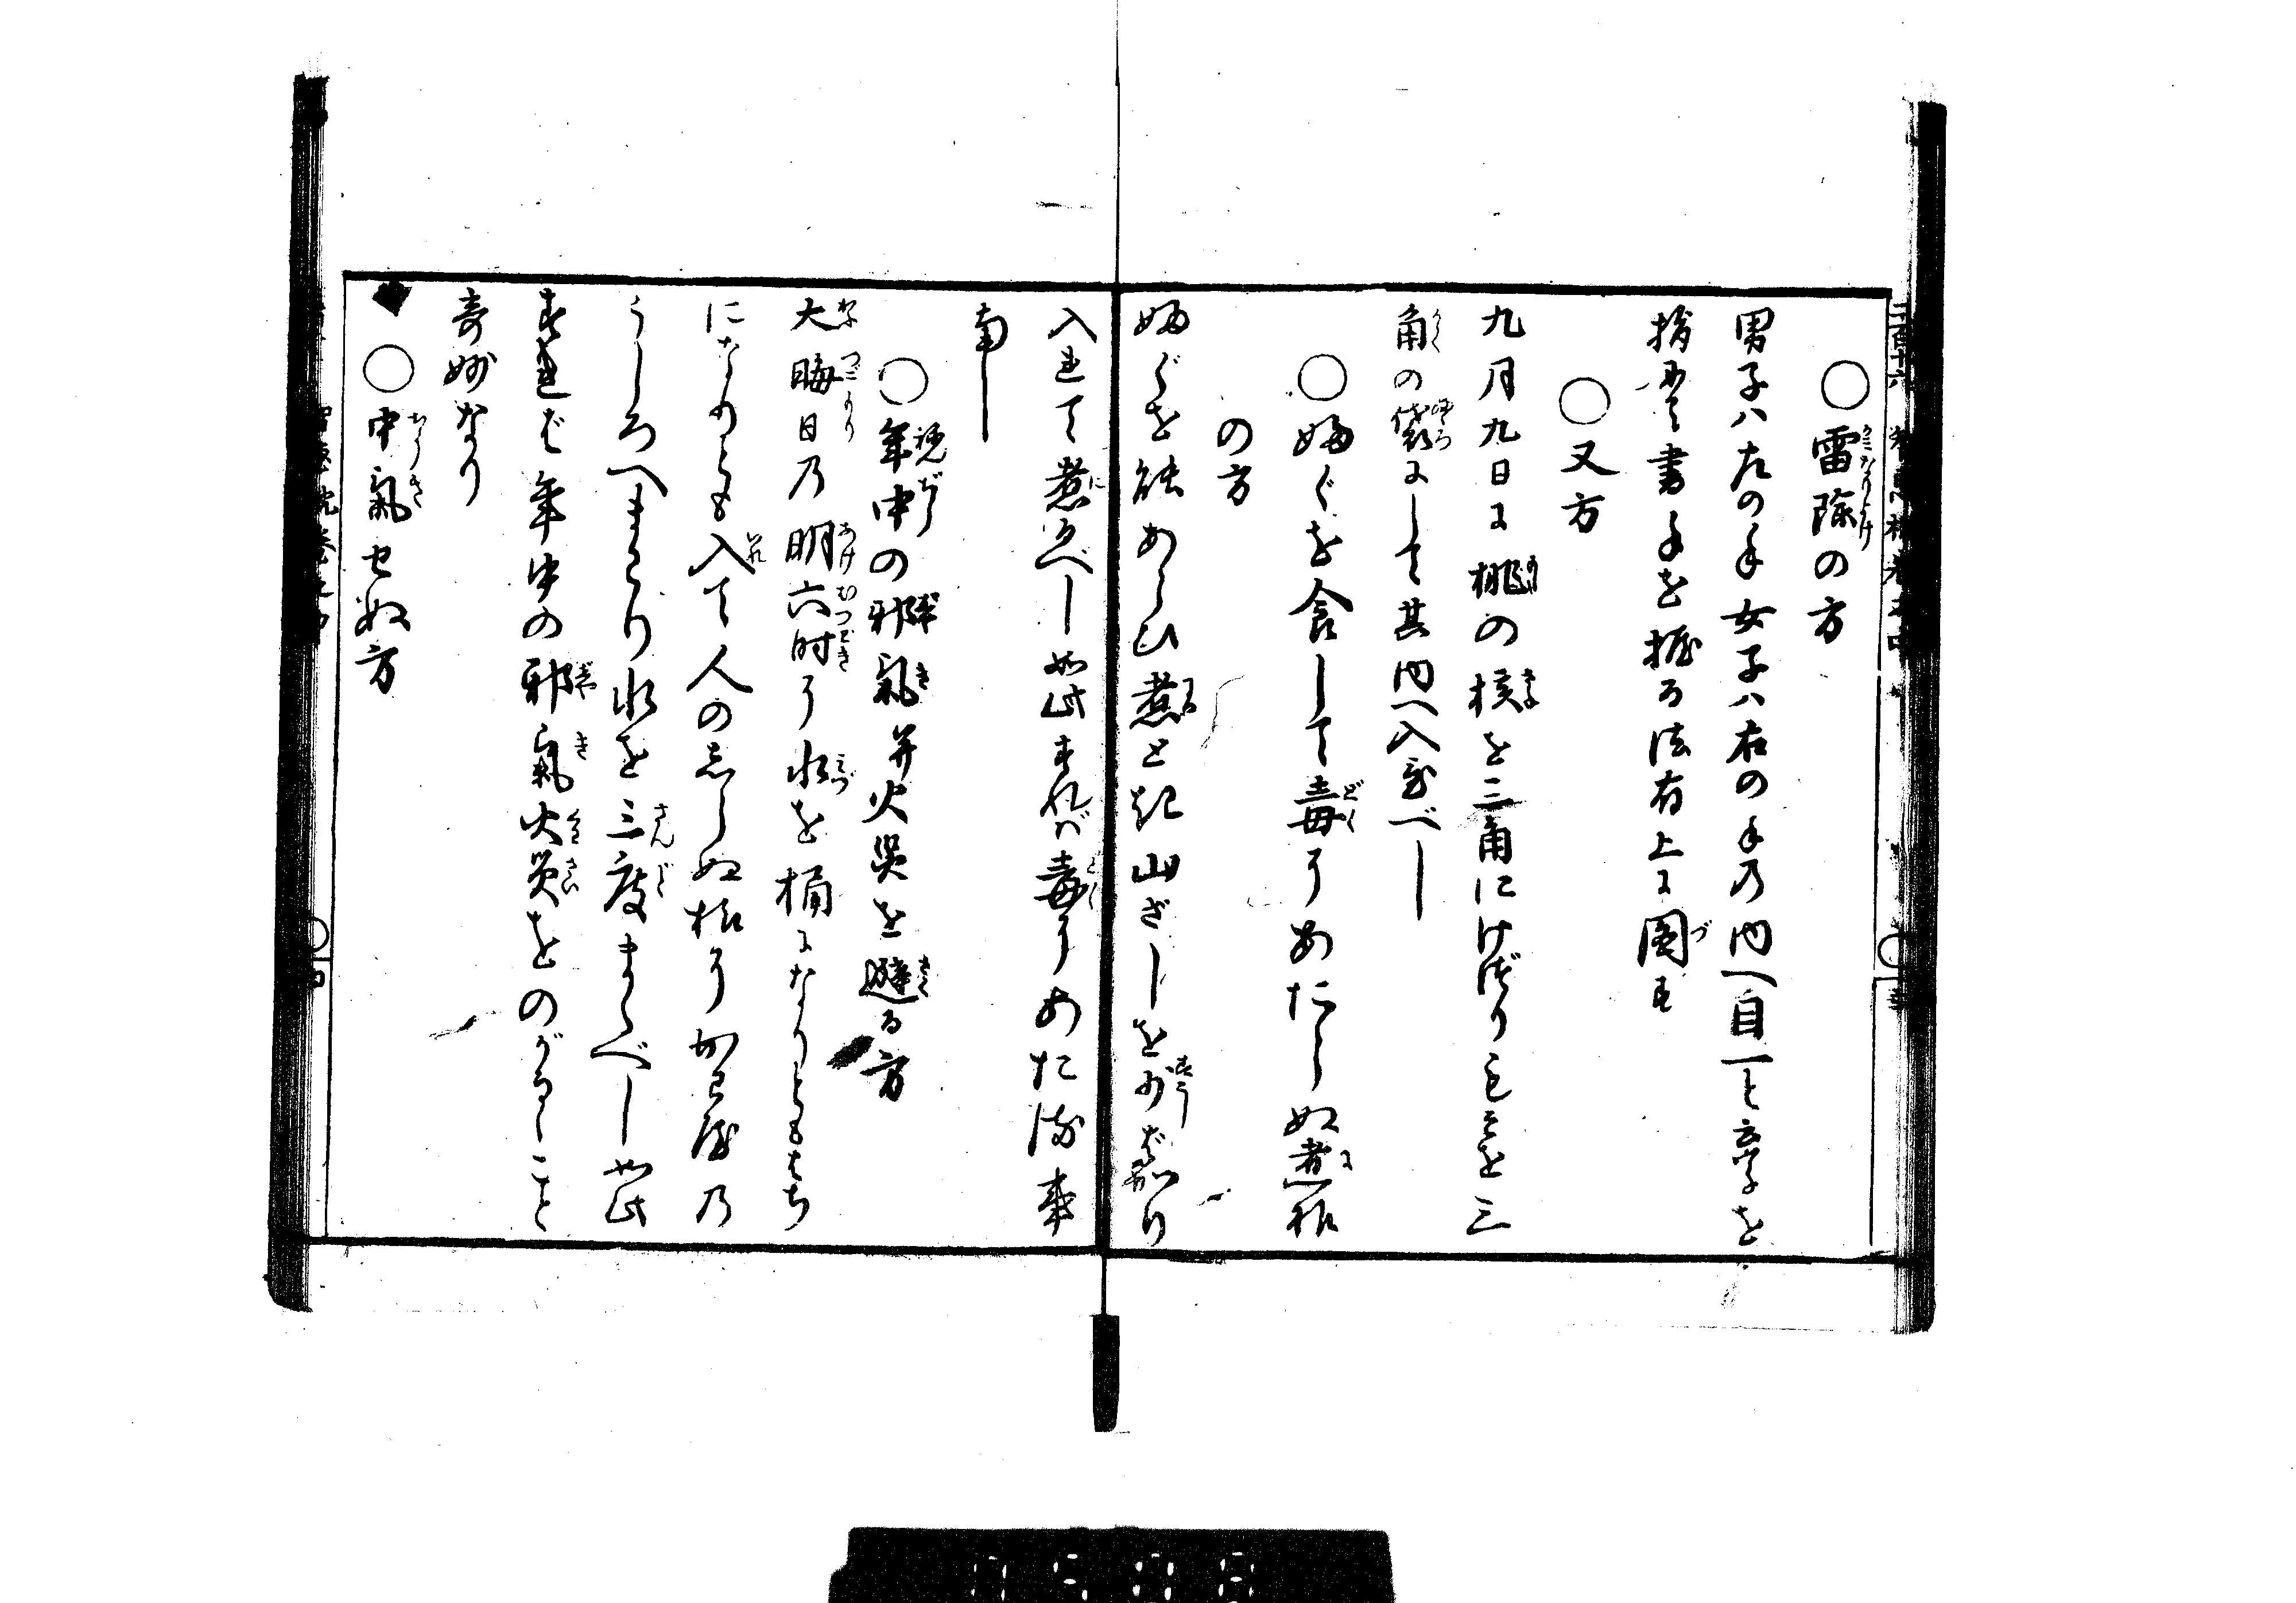 ○雷除の方
男子ハ左の手女子ハ右の手乃内へ自一と言字を
指にて書手を握る法有上に図す
○又方
九月九日に桃の核を三角にけづり是を三
角の袋にして其内へ入置べし
○ふぐを食して毒にあたらぬ煮様
の方
ふぐを能あらひ煮とき山ざしを少ばかり
入れて煮るべし如此すれば毒にあたる事
なし
○年中の邪氣并火災を避る方
大晦日乃明六時に水を桶になりともはち
になりとも入て人のしらぬ様にかわ屋乃
うしろへまはり水を三度まくべし如此
すればば年中の邪氣火災をのがるゝこと
奇妙なり
○中氣せぬ方